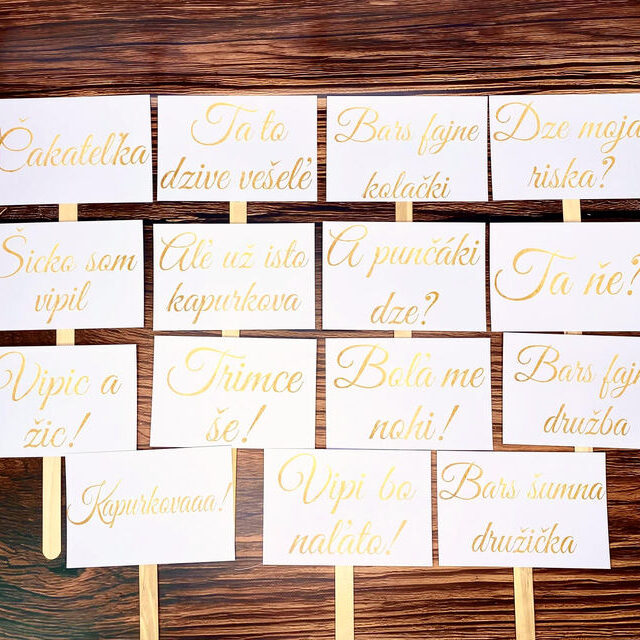 Čakateľka
Ta to
dzive vešeľe
Bars fajne
kolački
Dze moja
riska?
Šicko som
vipil
Aľe už isto
kapurkova
A punčáki
dze?
Ta ňe?
Vipic a
žic!
Trimce
še!
Boľa me
nohi!
Bars fajn
družba
Kapurkovaaa!
Vipi bo
naľato!
Bars šumna
družička